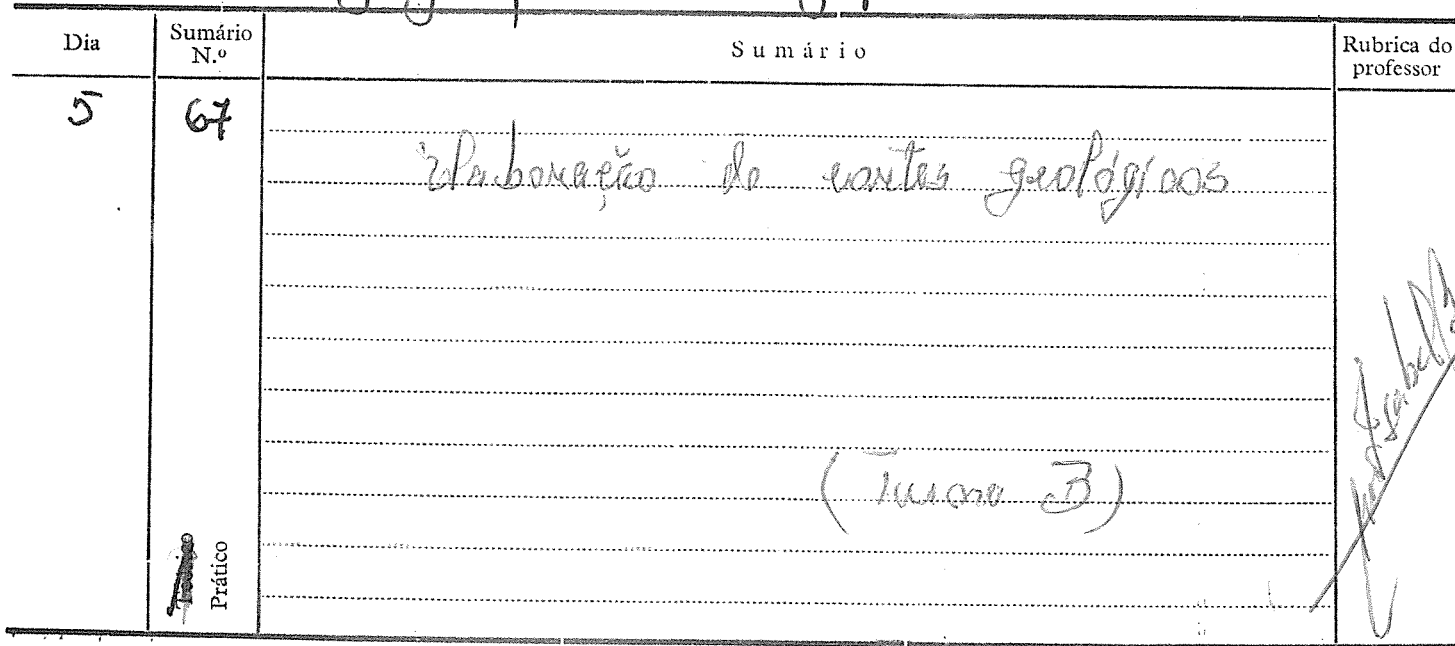 Dia
Sumário N.º
Sumário
Rubrica do professor
5
67
Elaboração de cortes geológicos
(Turma B)
Prático